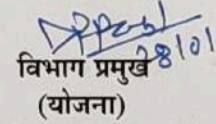 28/01
विभाग प्रमुख
(योजना)